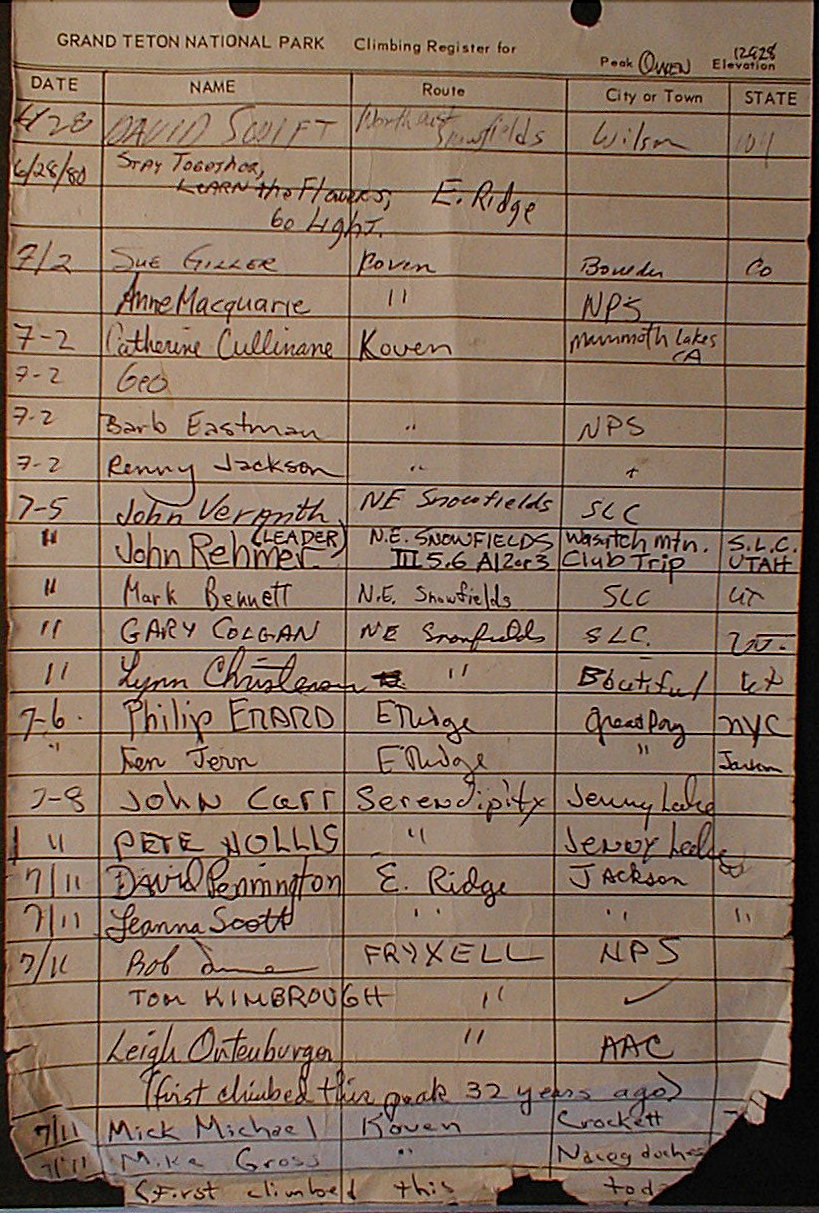 GRAND TETON NATIONAL PARK Climbing Register for Peak OWEN Elevation 12928
DATE NAME Route City or Town STATE
6/28 DAVID SWIFT Northeast Snowfields Wilson WY
6/28/80 STAY TOGETHER,
LEARN the Flowers; E. Ridge
Go Light.
7/2 SUE GILLER Koven Boulder Co
Anne Macquarie " NPS
7-2 Catherine Cullinane Koven Mammoth Lakes CA
7-2 Geo
7-2 Barb Eastman " NPS
7-2 Renny Jackson "
7-5 John Veranth NE Snowfields SLC
" John Rehmer (LEADER) N.E. SNOWFIELDS Wasatch Mtn. S.L.C.
III 5.6 A1 2 or 3 Club Trip UTAH
" Mark Bennett N.E. Snowfields SLC UT
" GARY COLGAN NE Snowfields SLC. UT.
" Lynn Christenson " Boutiful Ut
7-6 Philip ERARD E Ridge NYC
" Ken Jern E Ridge " Jackson
7-8 JOHN Carr Serendipity Jenny Lake
" PETE HOLLIS " JENNY Lake
7/11 DAVID Pennington E. Ridge JAckson
7/11 Leanna Scott " " "
7/11 Bob FRYXELL NPS
TOM KIMBROUGH " ✓
Leigh Ortenburger " AAC
(first climbed this peak 32 years ago)
7/11 Mick Michael Koven Crockett
7/11 Mike Gross " Nacogdoches
(First climbed this tod